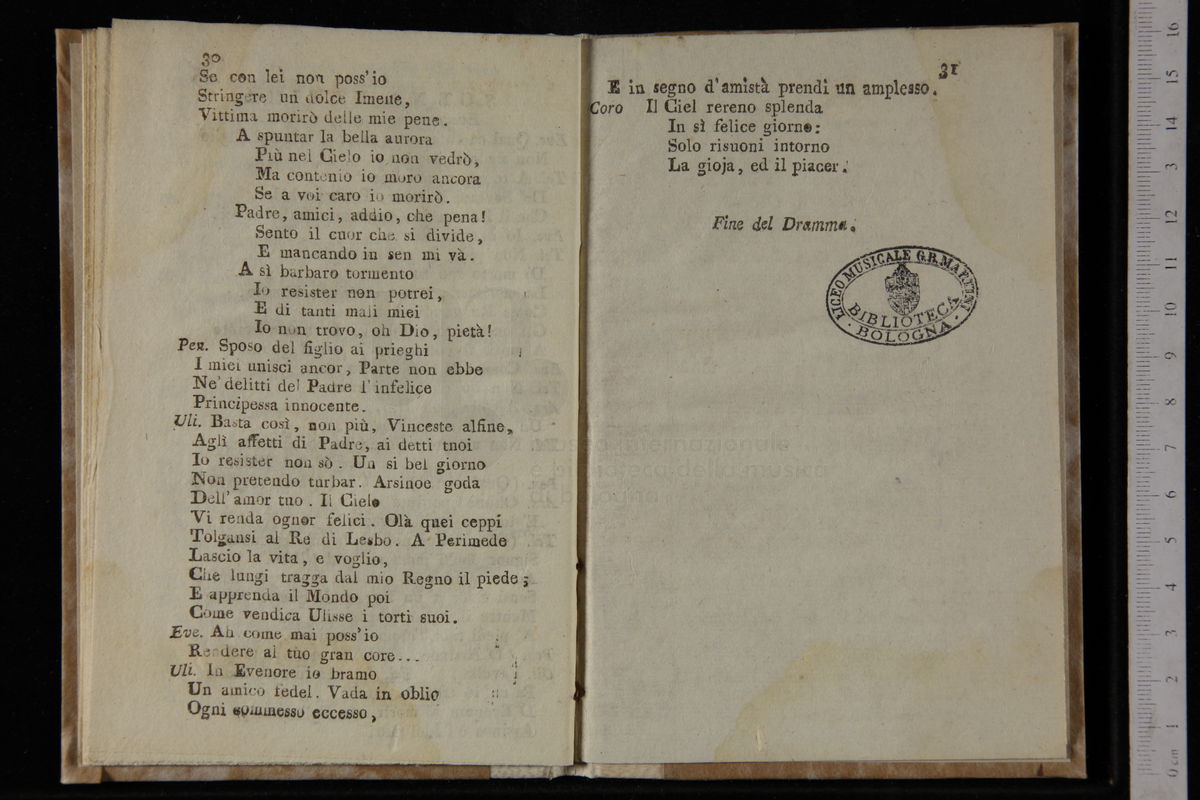 30
Se con lei non poss'io
Stringere un dolce Imene,
Vittima morirò delle mie pene.
A spuntar la bella aurora
Più nel Cielo io non vedrò,
Ma contento io moro ancora
Se a voi caro io morirò.
Padre, amici, addio, che pena!
Sento il cuor che si divide,
E mancando in sen mi và.
A sì barbaro tormento
Io resister non potrei,
E di tanti mali miei
Io non trovo, oh Dio, pietà!
Pen. Sposo del figlio ai prieghi
I miei unisci ancor, Parte non ebbe
Ne' delitti del Padre l'infelice
Principessa innocente.
Uli. Basta così, non più, Vinceste alfine,
Agli affetti di Padre, ai detti tuoi
Io resister non sò. Un si bel giorno
Non pretendo turbar. Arsinoe goda
Dell'amor tuo. Il Cielo
Vi renda ognor felici. Olà quei ceppi
Tolgansi al Re di Lesbo. A Perimede
Lascio la vita, e voglio,
Che lungi tragga dal mio Regno il piede;
E apprenda il Mondo poi
Come vendica Ulisse i torti suoi.
Eve. Ah come mai poss'io
Rendere al tuo gran core...
Uli. In Evenore io bramo
Un amico fedel. Vada in oblio
Ogni commesso eccesso,
31
E in segno d'amistà prendi un amplesso.
Coro Il Ciel rereno splenda
In sì felice giorno:
Solo risuoni intorno
La gioja, ed il piacer.
Fine del Dramma.
LICEO MUSICALE G.B. MARTINI
BIBLIOTECA
BOLOGNA
e biblioteca della musica
0 cm 1 2 3 4 5 6 7 8 9 10 11 12 13 14 15 16